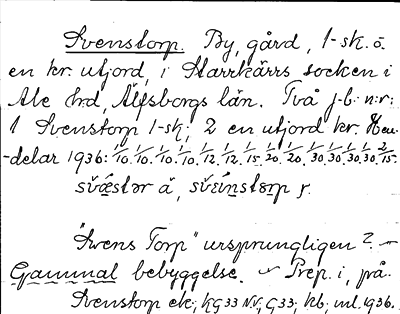 Svenstorp. By, gård, 1-sk. o.
en kr. utjord, i Starrkärrs socken i
Ale hrd, Älfsborgs län. Två j.-b. n:r:
1 Svenstorp 1-sk; 2 en utjord kr. Hem-
-delar 1936: 1/10. 1/10. 1/10. 1/10. 1/12. 1/12. 1/15. 1/20. 1/20. 1/30. 1/30. 1/30. 1/30. 2/15.
"Svens Torp" ursprungligen?
Gammal bebyggelse. Prep. i, på.
Svenstorp ek; KG33 NV; G33; kb; ml. 1936.